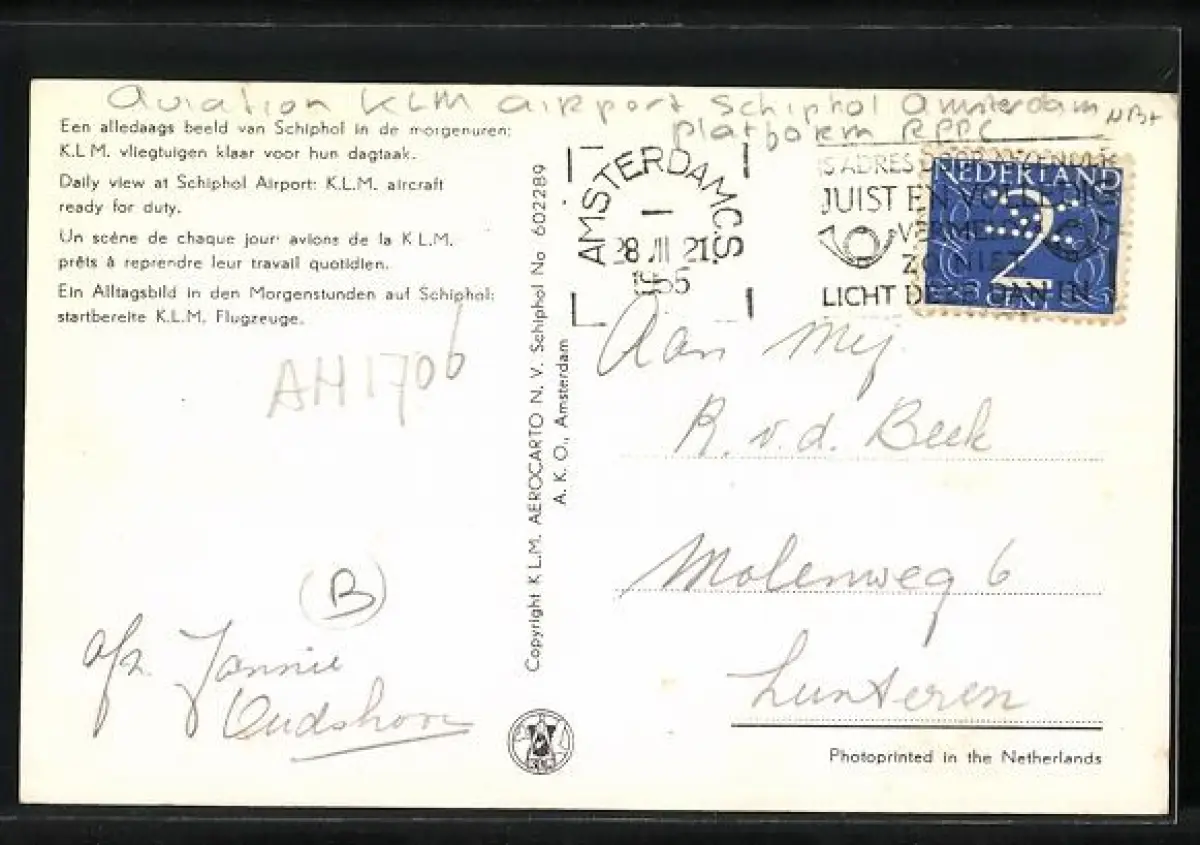 Aviation KLM airport Schiphol Amsterdam
platborm RPPC
Een alledaags beeld van Schiphol in de morgenuren:
K.L.M. vliegtuigen klaar voor hun dagtaak.
Daily view at Schiphol Airport: K.L.M. aircraft
ready for duty.
Un scène de chaque jour: avions de la K L M.
prêts à reprendre leur travail quotidien.
Ein Alltagsbild in den Morgenstunden auf Schiphol:
startbereite K.L.M. Flugzeuge.
AH1706
(B)
afz. Jannie
Oudshoorn
Copyright K L.M. AEROCARTO N. V. Schiphol No 602289
A. K. O., Amsterdam
AMSTERDAM C.S.
1955
IS ADRES
JUIST EN VOLLEDIG
ZO NIET,
LICHT DEZE DAN IN
NEDERLAND
2
Aan Mej.
R. v. d. Beek
Molenweg 6
Lunteren
Photoprinted in the Netherlands